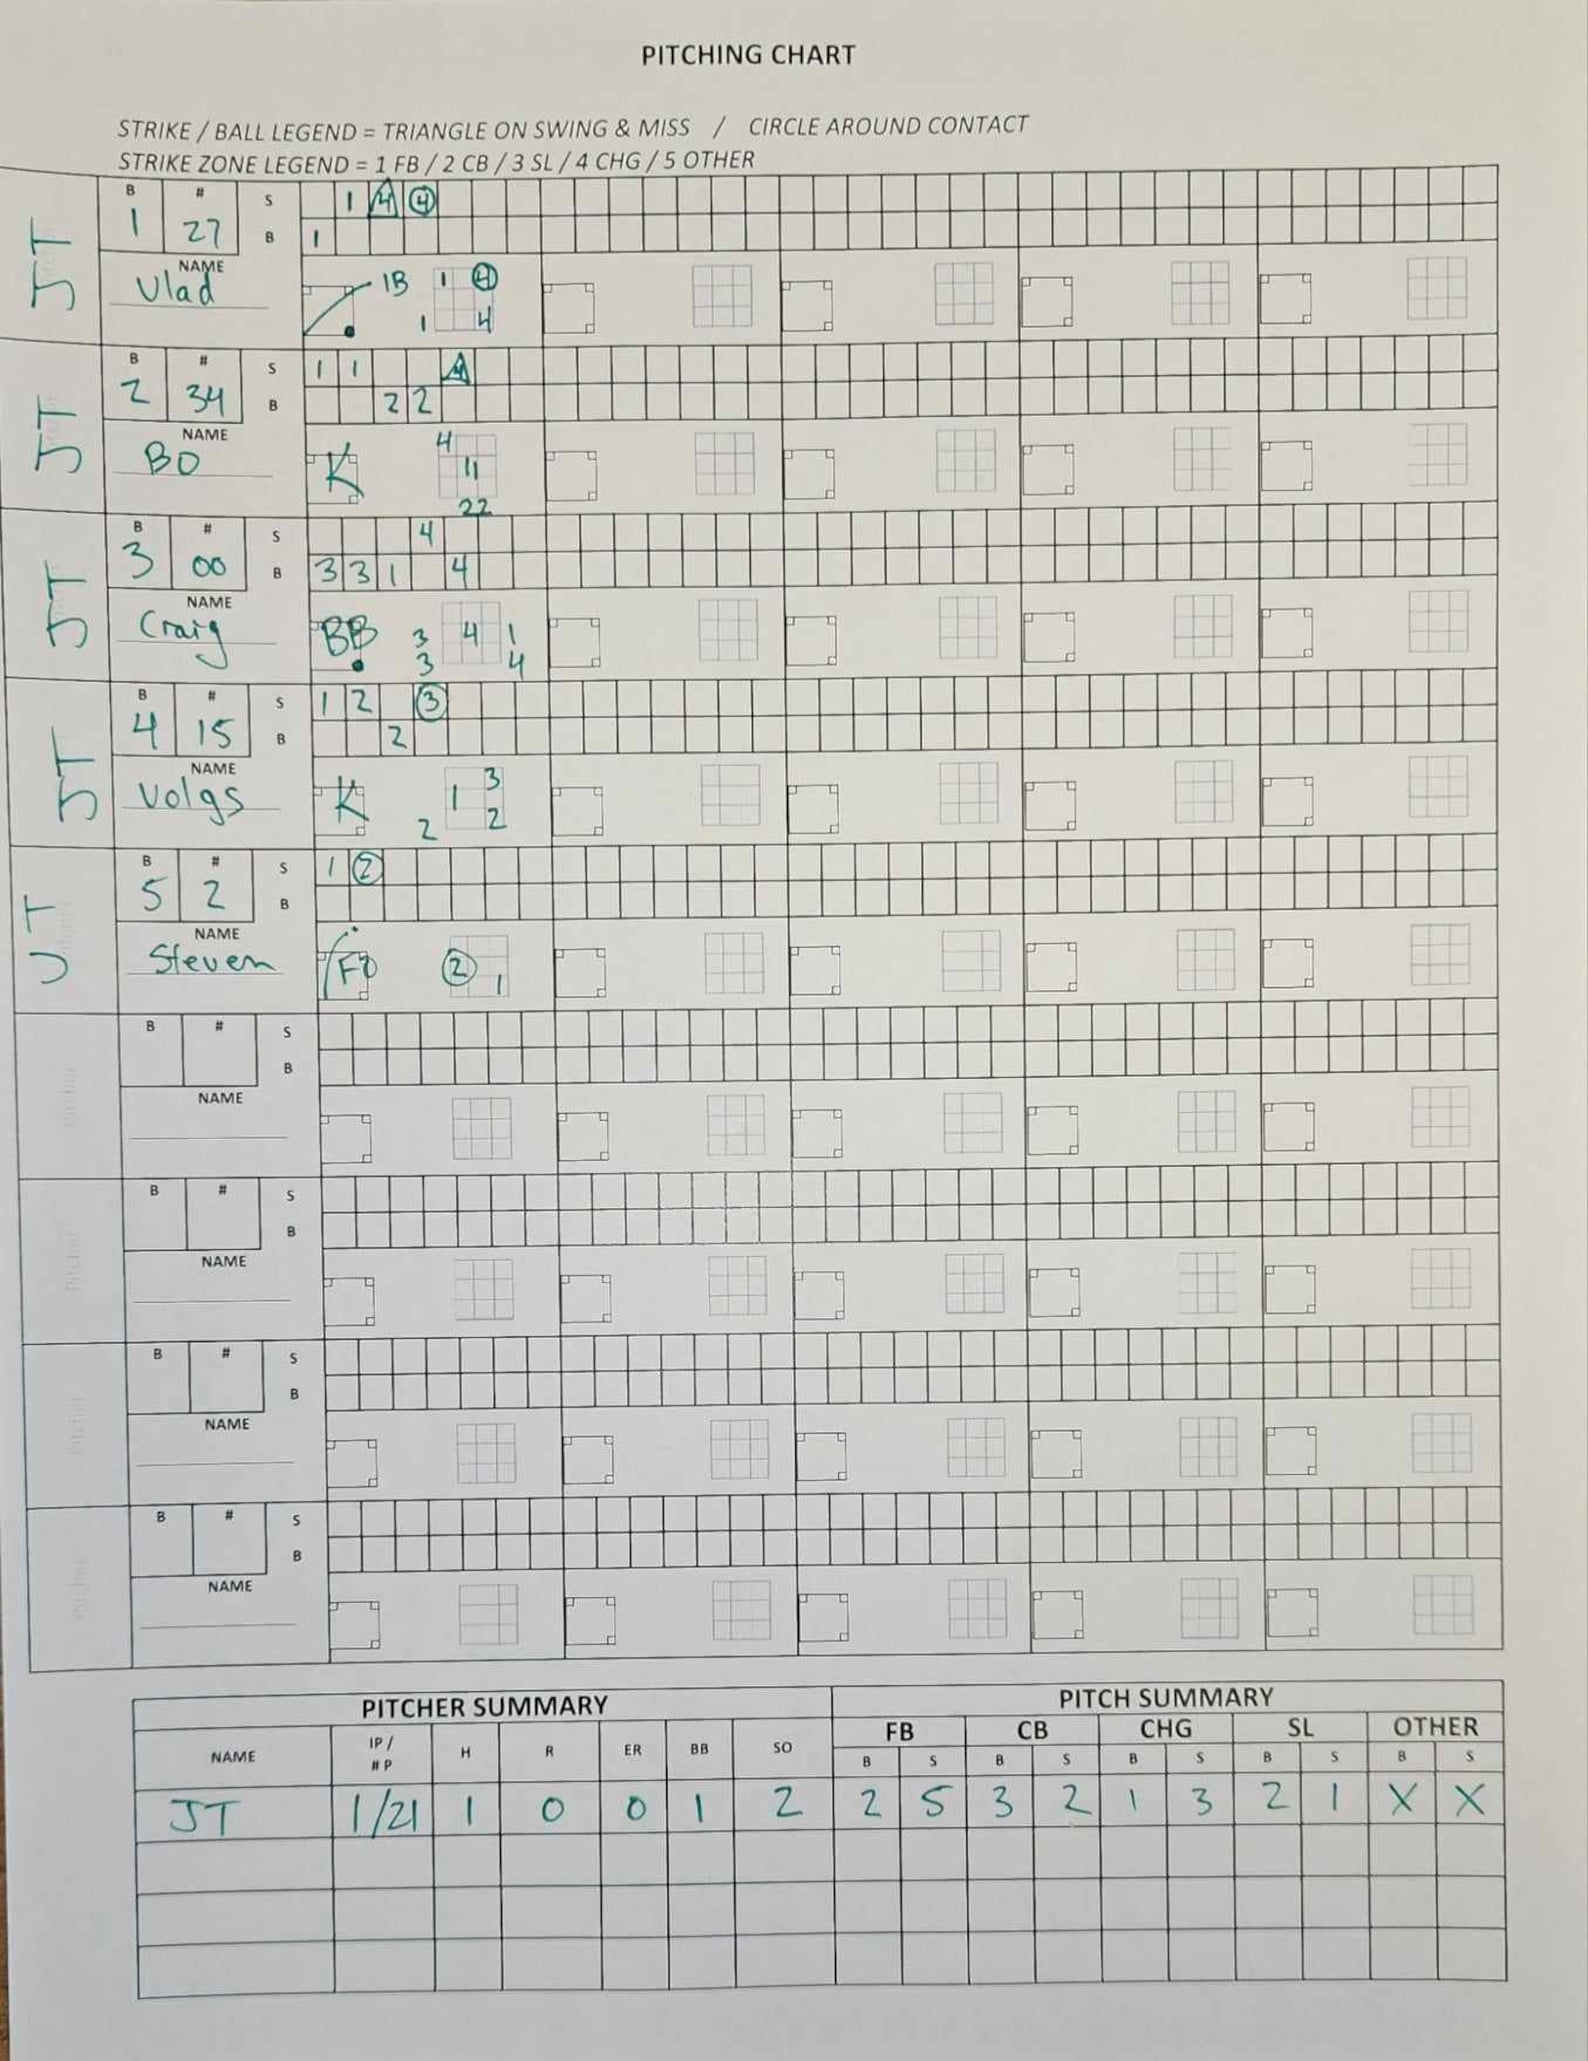 PITCHING CHART
STRIKE / BALL LEGEND = TRIANGLE ON SWING & MISS / CIRCLE AROUND CONTACT
STRIKE ZONE LEGEND = 1 FB / 2 CB / 3 SL / 4 CHG / 5 OTHER
JT
B # S 1 4 4
1 27 B 1
NAME
Vlad
1B 1 4
1 4
JT
B # S 1 1 4
2 34 B 2 2
NAME
BO
K 4
11
22
JT
B # S 4
3 00 B 3 3 1 4
NAME
Craig
BB 3 4 1
3 4
JT
B # S 1 2 3
4 15 B 2
NAME
Volgs
K 1 3
2 2
JT
B # S 1 2
5 2 B
NAME
Steven
F7 2 1
B # S
B
NAME
Pitcher
B # S
B
NAME
Pitcher
B # S
B
NAME
Pitcher
B # S
B
NAME
Pitcher
PITCHER SUMMARY PITCH SUMMARY
NAME IP / #P H R ER BB SO FB CB CHG SL OTHER
B S B S B S B S B S
JT 1/21 1 0 0 1 2 2 5 3 2 1 3 2 1 X X